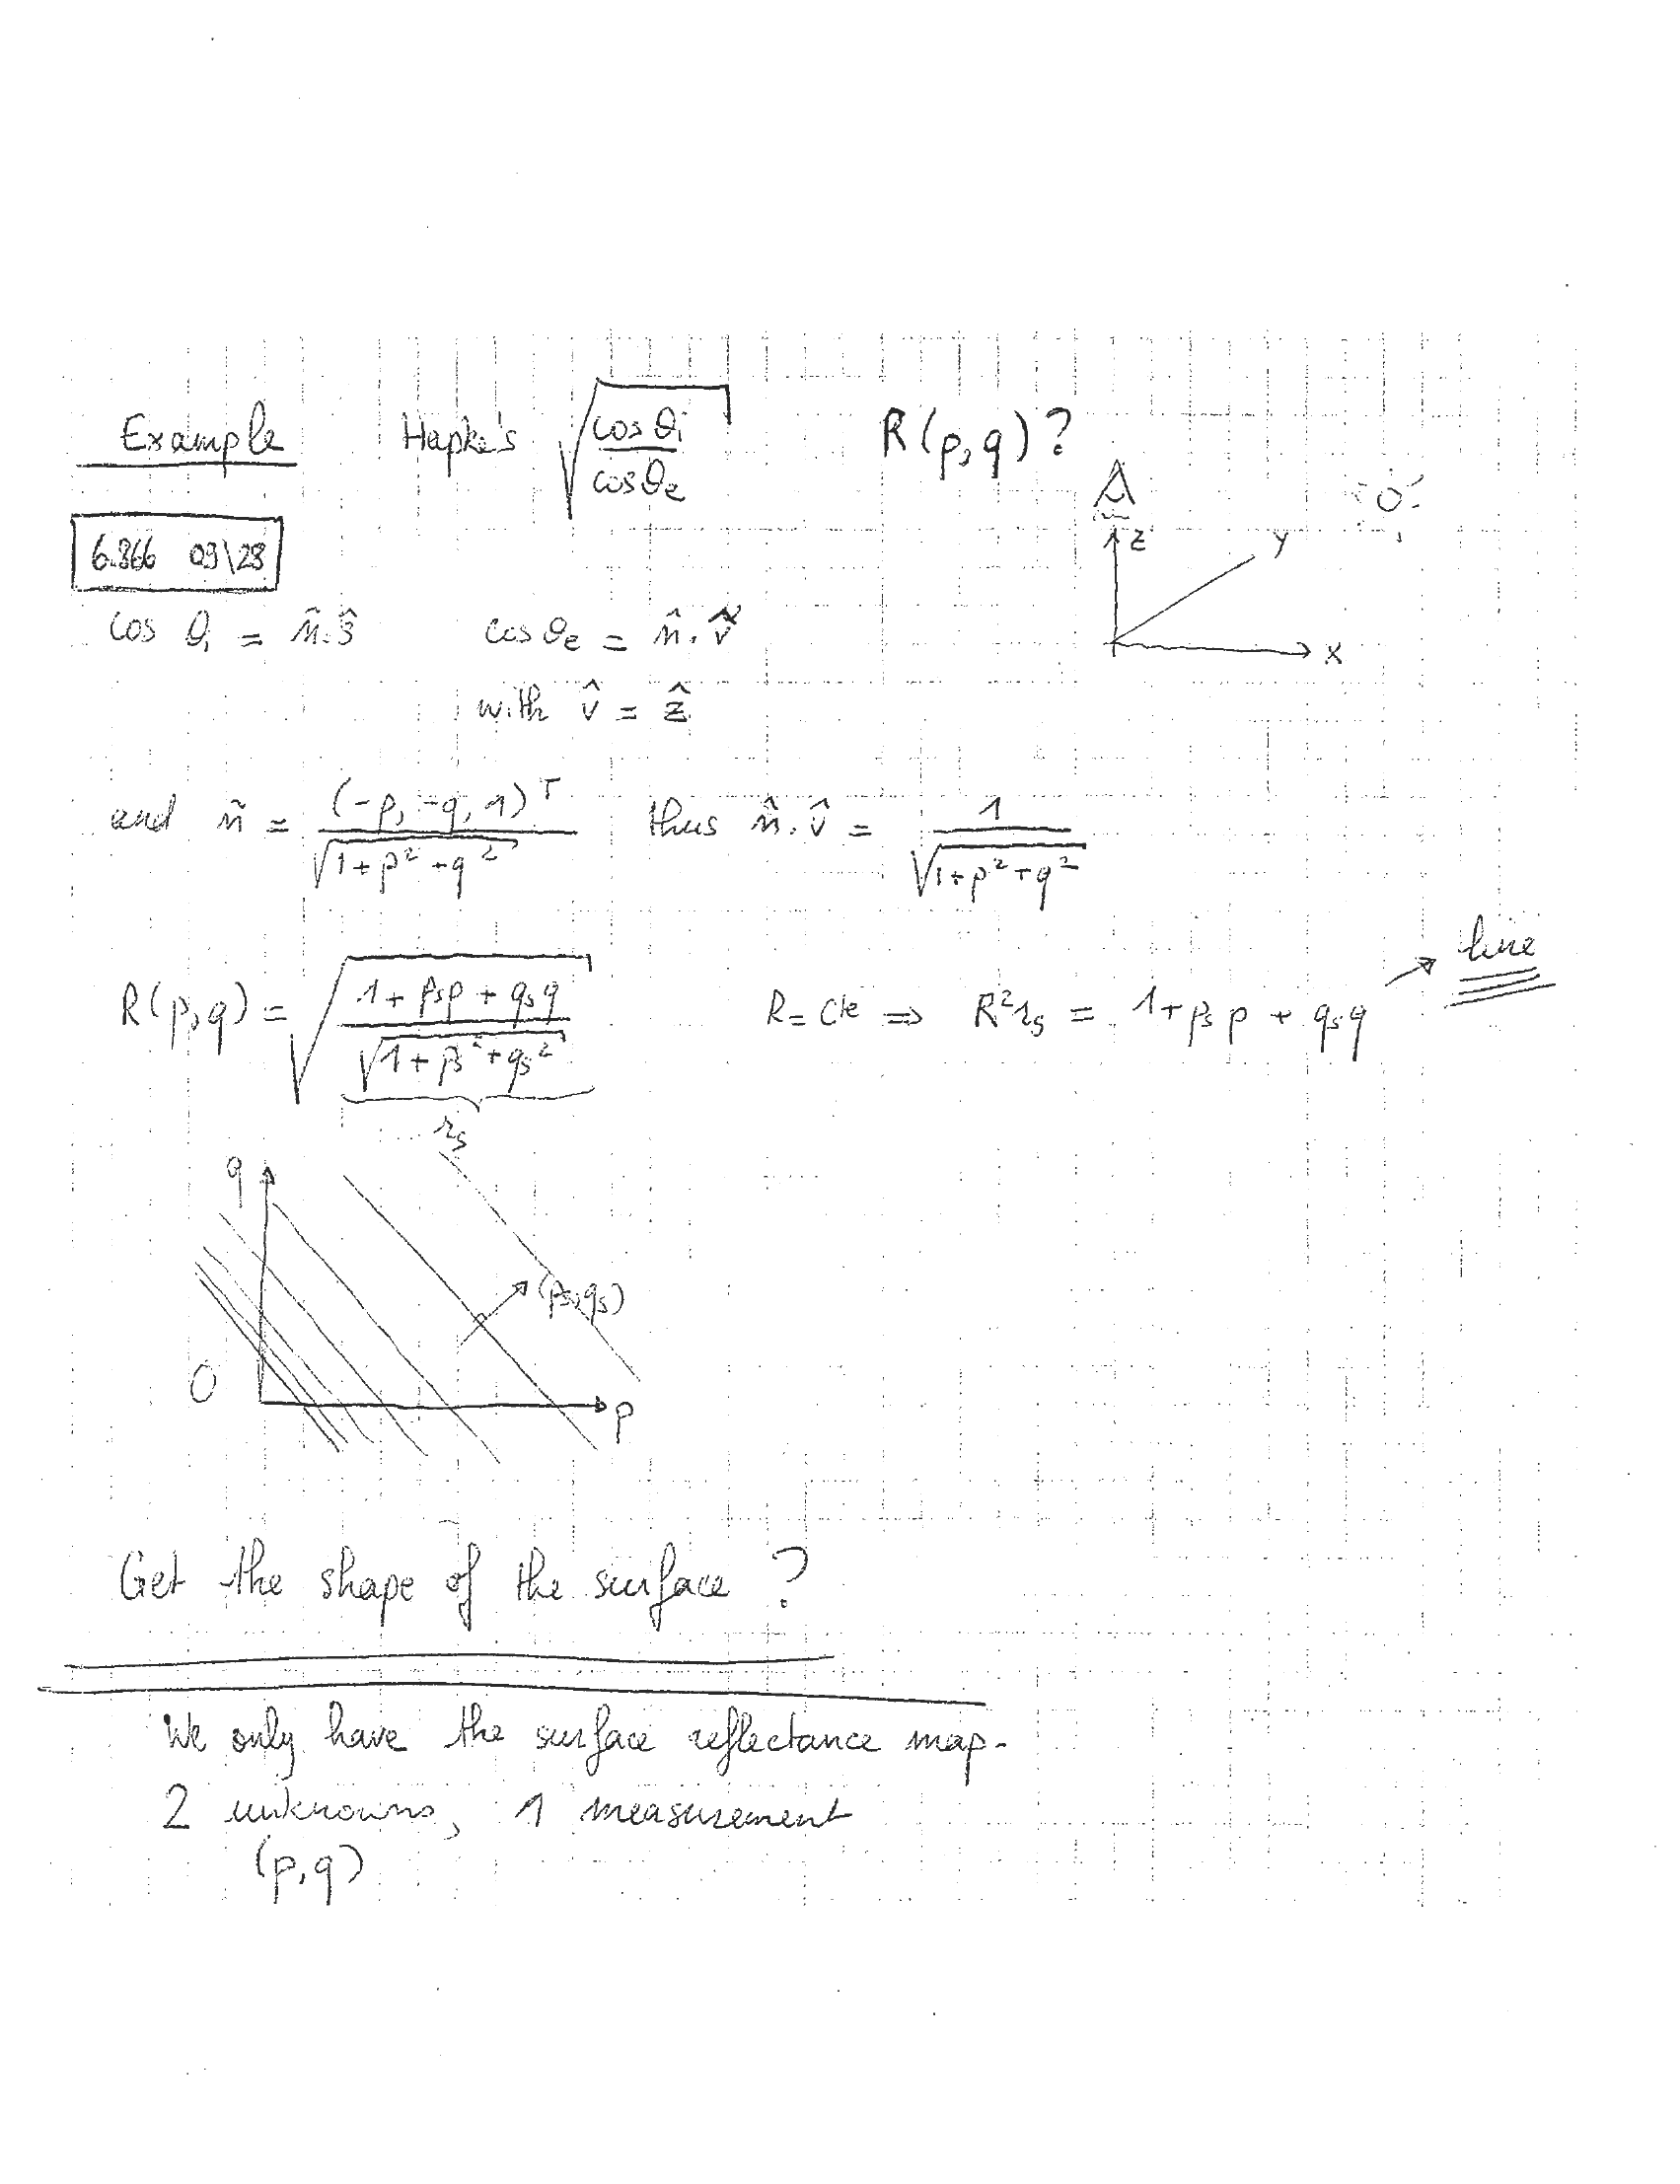 Example Hapke's √(cos θi / cos θe) R(p,q)?
6.866 09\28
z y x
cos θi = n̂.ŝ cos θe = n̂.v̂
with v̂ = ẑ
and n̂ = (-p, -q, 1)ᵀ / √(1+p²+q²) thus n̂.v̂ = 1 / √(1+p²+q²)
R(p,q) = √((1 + psp + qsq) / √(1 + ps² + qs²)) R = cte ⇒ R²rs = 1 + ps p + qs q → line
rs
q
(ps,qs)
O
p
Get the shape of the surface ?
We only have the surface reflectance map.
2 unknowns, 1 measurement
(p,q)